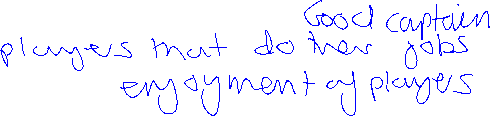 Good captain
players that do their jobs
enjoyment of players